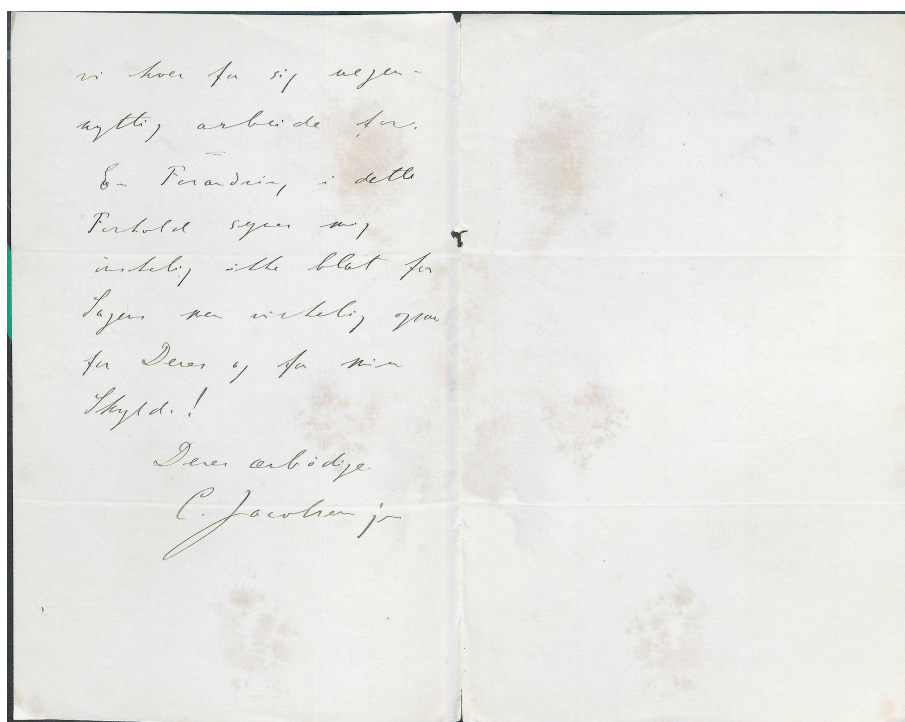 vi hver for sig uegen-
nyttig arbeide for.
En Forandring i dette
Forhold synes mig
ønskelig ikke blot for
Sagens men virkelig ogsaa
for Deres og for min
Skyld.!
Deres ærbødige
C. Jacobsen jr